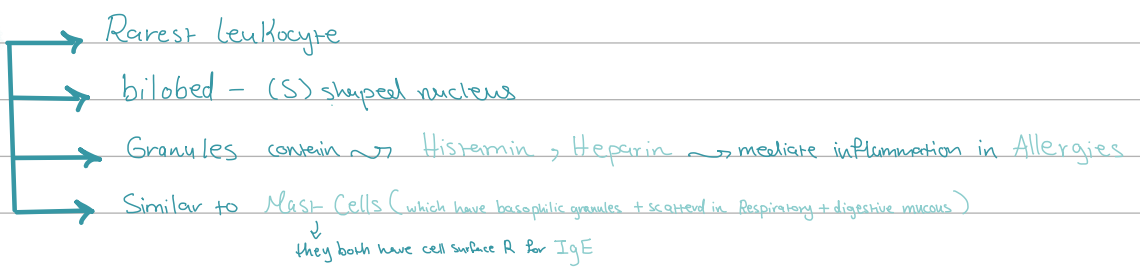 Rarest leukocyte
bilobed - (S) shaped nucleus
Granules contain Histamin, Heparin mediate inflammation in Allergies
Similar to Mast Cells (which have basophilic granules + scatterd in Respiratory + digestive mucous)
they both have cell surface R for IgE